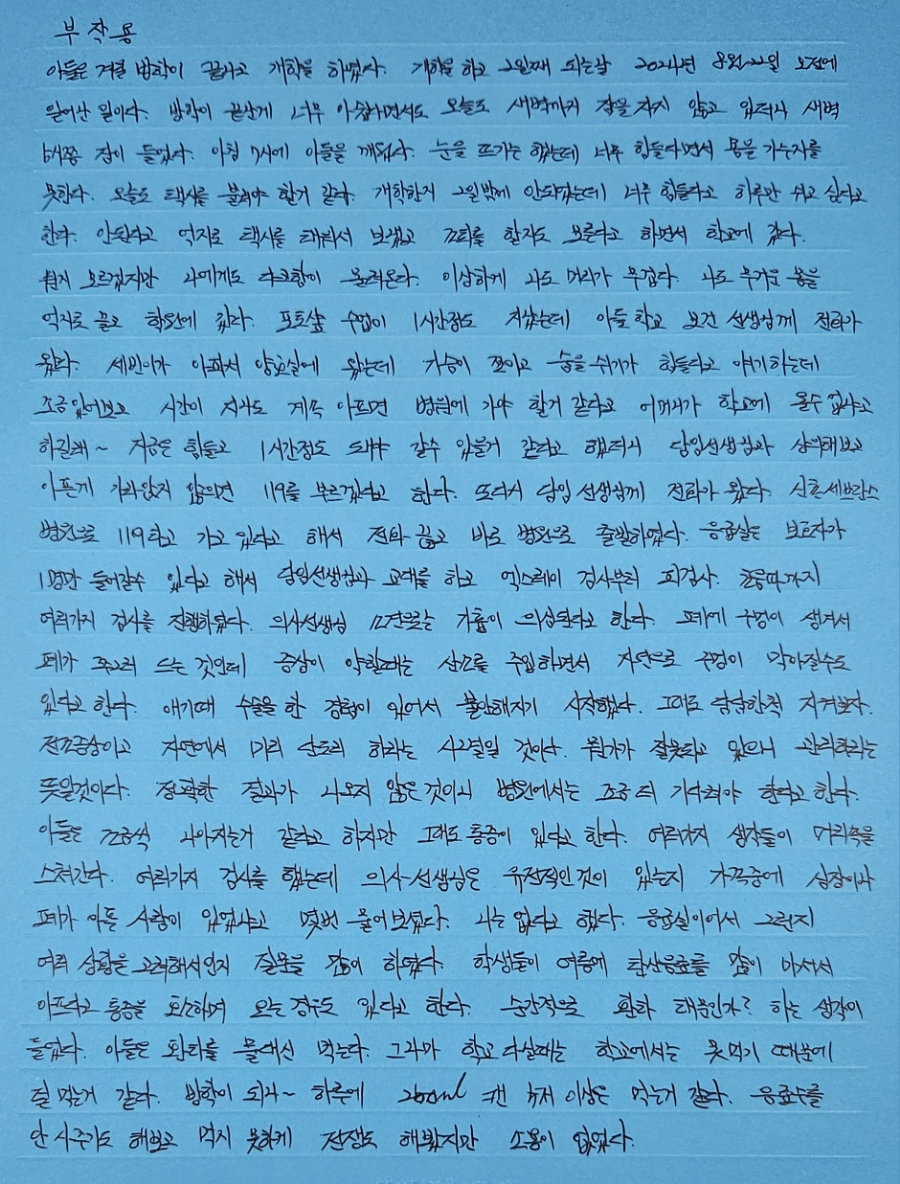 부작용
아들은 겨울 방학이 끝나고 개학을 하였다. 개학을 하고 2일째 되는날 2024년 8월 22일 오전에
일어난 일이다. 방학이 끝난게 너무 아쉽다면서도 오늘도 새벽까지 잠을 자지 않고 있더니 새벽
5시쯤 잠이 들었다. 아침 7시에 아들을 깨웠다. 눈을 뜨기는 했는데 너무 힘들다면서 몸을 가누지를
못한다. 오늘도 택시를 불러야 할거 같다. 개학한지 2일밖에 안되었는데 너무 힘들다고 하루만 쉬고 싶다고
한다. 안된다고 억지로 택시를 태워서 보냈고 조퇴를 할지도 모른다고 하면서 학교에 갔다.
뭔지 모르겠지만 나에게도 다크함이 몰려온다. 이상하게 나도 머리가 무겁다. 나도 무거운 몸을
억지로 끌고 학원에 갔다. 포토샵 수업이 1시간정도 지났는데 아들 학교 보건 선생님께 전화가
왔다. 세빈이가 아파서 양호실에 왔는데 가슴이 쪼이고 숨을 쉬기가 힘들다고 얘기하는데
조금있어보고 시간이 지나도 계속 아프면 병원에 가야 할거 같다고 어머니가 학교에 올수 있냐고
하길래~ 지금은 힘들고 1시간정도 되야 갈수 있을거 같다고 했더니 담임선생님과 상의해보고
아픈게 가라앉지 않으면 119를 부르겠다고 한다. 또다시 담임 선생님께 전화가 왔다. 신촌세브란스
병원으로 119타고 가고 있다고 해서 전화 끊고 바로 병원으로 출발하였다. 응급실은 보호자가
1명만 들어갈수 있다고 해서 담임선생님과 교대를 하고 엑스레이 검사부터 피검사. 초음파까지
여러가지 검사를 진행하였다. 의사선생님 소견으로는 기흉이 의심된다고 한다. 폐에 구멍이 생겨서
폐가 쪼그라 드는 것인데 증상이 약할때는 산소를 주입하면서 자연으로 구멍이 막아질수도
있다고 한다. 애기때 수술을 한 경험이 있어서 불안해지기 시작했다. 그래도 담담한척 지켜보자.
전조증상이고 자연에서 미리 단도리 하라는 시그널일 것이다. 뭔가가 잘못되고 있으니 관리하라는
뜻일것이다. 정확한 결과가 나오지 않은 것이니 병원에서는 조금 더 기다려야 한다고 한다.
아들은 조금씩 나아지는거 같다고 하지만 그래도 통증이 있다고 한다. 여러가지 생각들이 머리속을
스쳐간다. 여러가지 검사를 했는데 의사선생님은 유전적인 것이 있는지 가족중에 심장이나
폐가 아픈 사람이 있었냐고 몇번 물어보셨다. 나는 없다고 했다. 응급실이어서 그런지
여러 상황을 고려해서인지 질문을 많이 하였다. 학생들이 여름에 탄산음료를 많이 마셔서
아프다고 통증을 호소하며 오는 경우도 있다고 한다. 순간적으로 콜라 때문인가? 하는 생각이
들었다. 아들은 콜라를 물대신 먹는다. 그나마 학교 다닐때는 학교에서는 못먹기 때문에
덜 먹는거 같다. 방학이 되니~ 하루에 250ml 캔 4개 이상은 먹는거 같다. 음료수를
안 사주기도 해보고 먹지 못하게 전쟁도 해봤지만 소용이 없었다.